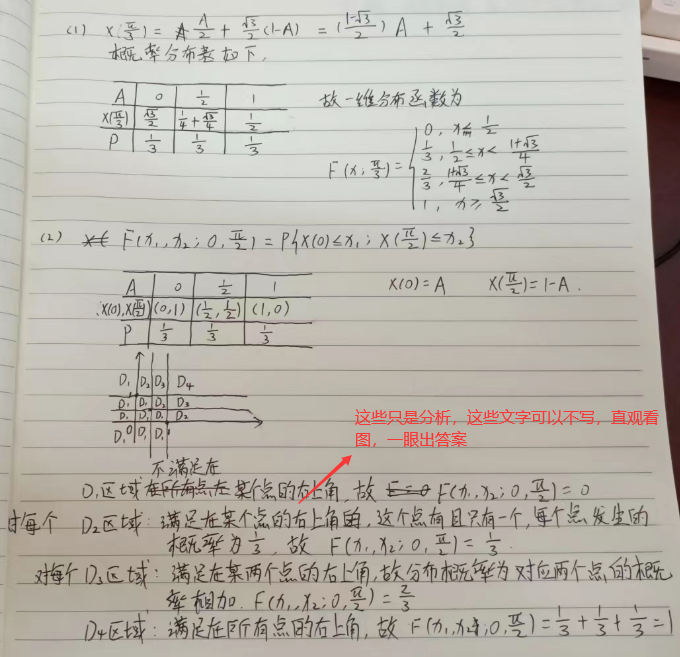 (1) X(π/3) = A/2 + √3/2 (1-A) = (1-√3/2) A + √3/2
概率分布表如下.
A 0 1/2 1
X(π/3) √3/2 1/4+√3/4 1/2
P 1/3 1/3 1/3
故一维分布函数为
F(x; π/3) =
0, x< 1/2
1/3, 1/2 ≤ x < 1+√3/4
2/3, 1+√3/4 ≤ x < √3/2
1, x ≥ √3/2
(2) F(x₁, x₂; 0, π/2) = P{X(0) ≤ x₁; X(π/2) ≤ x₂}
A 0 1/2 1
X(0), X(π/2) (0,1) (1/2, 1/2) (1,0)
P 1/3 1/3 1/3
X(0)=A X(π/2)=1-A.
D₁ D₂ D₃ D₄
D₁ D₁ D₂ D₃
D₁ D₁ D₁ D₂
D₁ 0 D₁ D₁
这些只是分析，这些文字可以不写，直观看
图，一眼出答案
不满足在
D₁区域在所有点在某个点的右上角, 故 F(x₁, x₂; 0, π/2) = 0
对每个 D₂区域: 满足在某个点的右上角, 这个点有且只有一个, 每个点发生的
概率为 1/3, 故 F(x₁, x₂; 0, π/2) = 1/3.
对每个D₃区域: 满足在某两个点的右上角, 故分布概率为对应两个点的概
率相加. F(x₁, x₂; 0, π/2) = 2/3
D₄区域: 满足在所有点的右上角, 故 F(x₁, x₂; 0, π/2) = 1/3 + 1/3 + 1/3 = 1